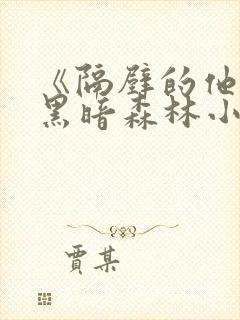 《隔壁的他
黑暗森林小
贾某